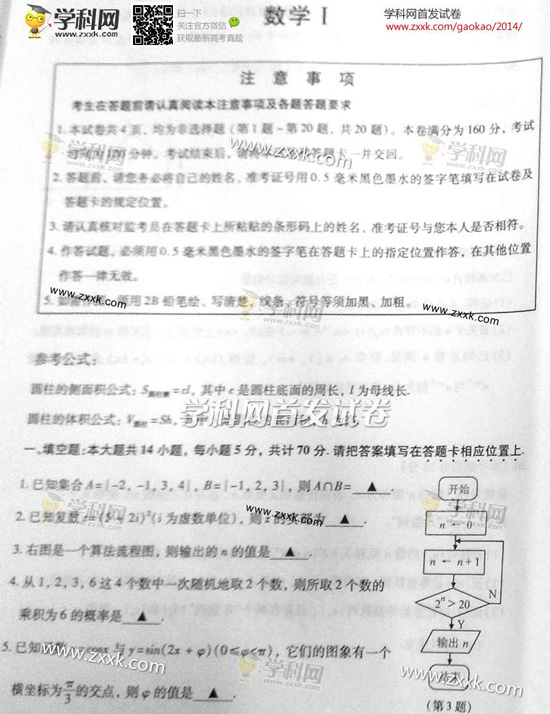 学科网
www.zxxk.com
扫一扫
关注官方微信
获取最新高考真题
学科网首发试卷
www.zxxk.com/gaokao/2014/
数学Ⅰ
注意事项
考生在答题前请认真阅读本注意事项及各题答题要求
1.本试卷共4页,均为非选择题(第1题~第20题,共20题).本卷满分为160分,考试
分钟.考试结束后,请 答题卡一并交回.
2.答题前,请您务必将自己的姓名、准考证号用0.5毫米黑色墨水的签字笔填写在试卷及
答题卡的规定位置.
3.请认真核对监考员在答题卡上所粘贴的条形码上的姓名、准考证号与您本人是否相符.
4.作答试题,必须用0.5毫米黑色墨水的签字笔在答题卡上的指定位置作答,在其他位置
作答一律无效.
5. 须用2B铅笔绘、写清楚,线条、符号等须加黑、加粗.
www.zxxk.com
参考公式:
圆柱的侧面积公式:S圆柱侧=cl,其中c是圆柱底面的周长,l为母线长.
圆柱的体积公式:V圆柱=Sh,
学科网首发试卷
一、填空题:本大题共14小题,每小题5分,共计70分.请把答案填写在答题卡相应位置上.
1.已知集合A={-2,-1,3,4},B={-1,2,3},则A∩B=▲.
2.已知复数z=(5+2i)²(i为虚数单位),则z的实部为▲.
3.右图是一个算法流程图,则输出的n的值是▲.
4.从1,2,3,6这4个数中一次随机地取2个数,则所取2个数的
乘积为6的概率是▲.
5.已知 cosx与y=sin(2x+φ)(0≤φ<π),它们的图象有一个
横坐标为π/3的交点,则φ的值是▲.
开始
n←0
n←n+1
2ⁿ>20
N
Y
输出n
(第3题)
学科网
www.zxxk.com